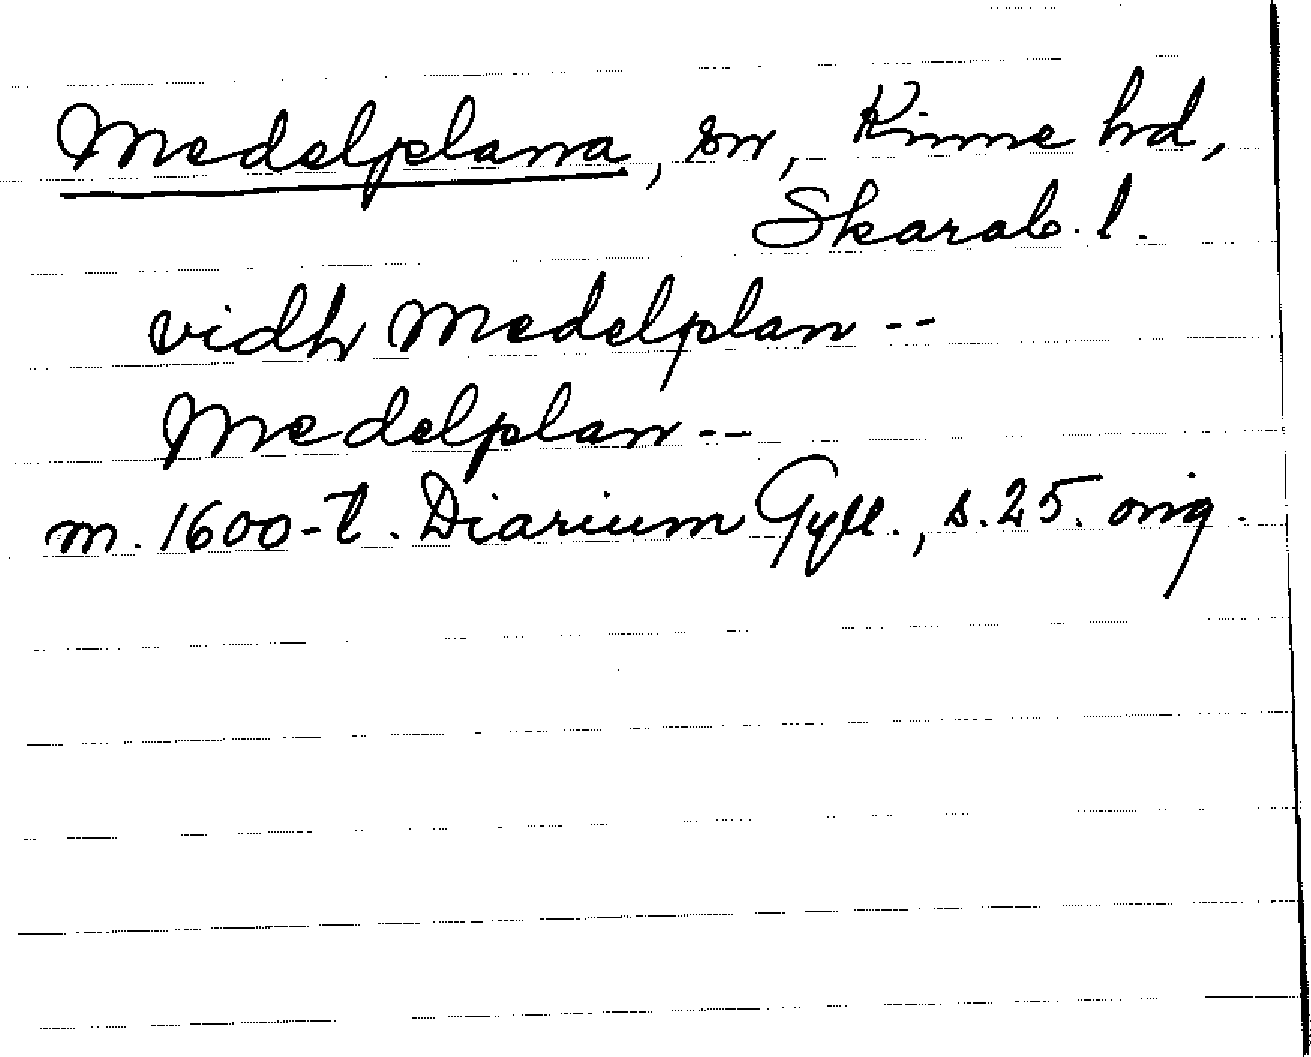 Medelplana, sn, Kinne hd,
Skarab. l.
vidh Medelplan --
Medelplan --
m. 1600-t. Diarium Gyll., s. 25. orig.